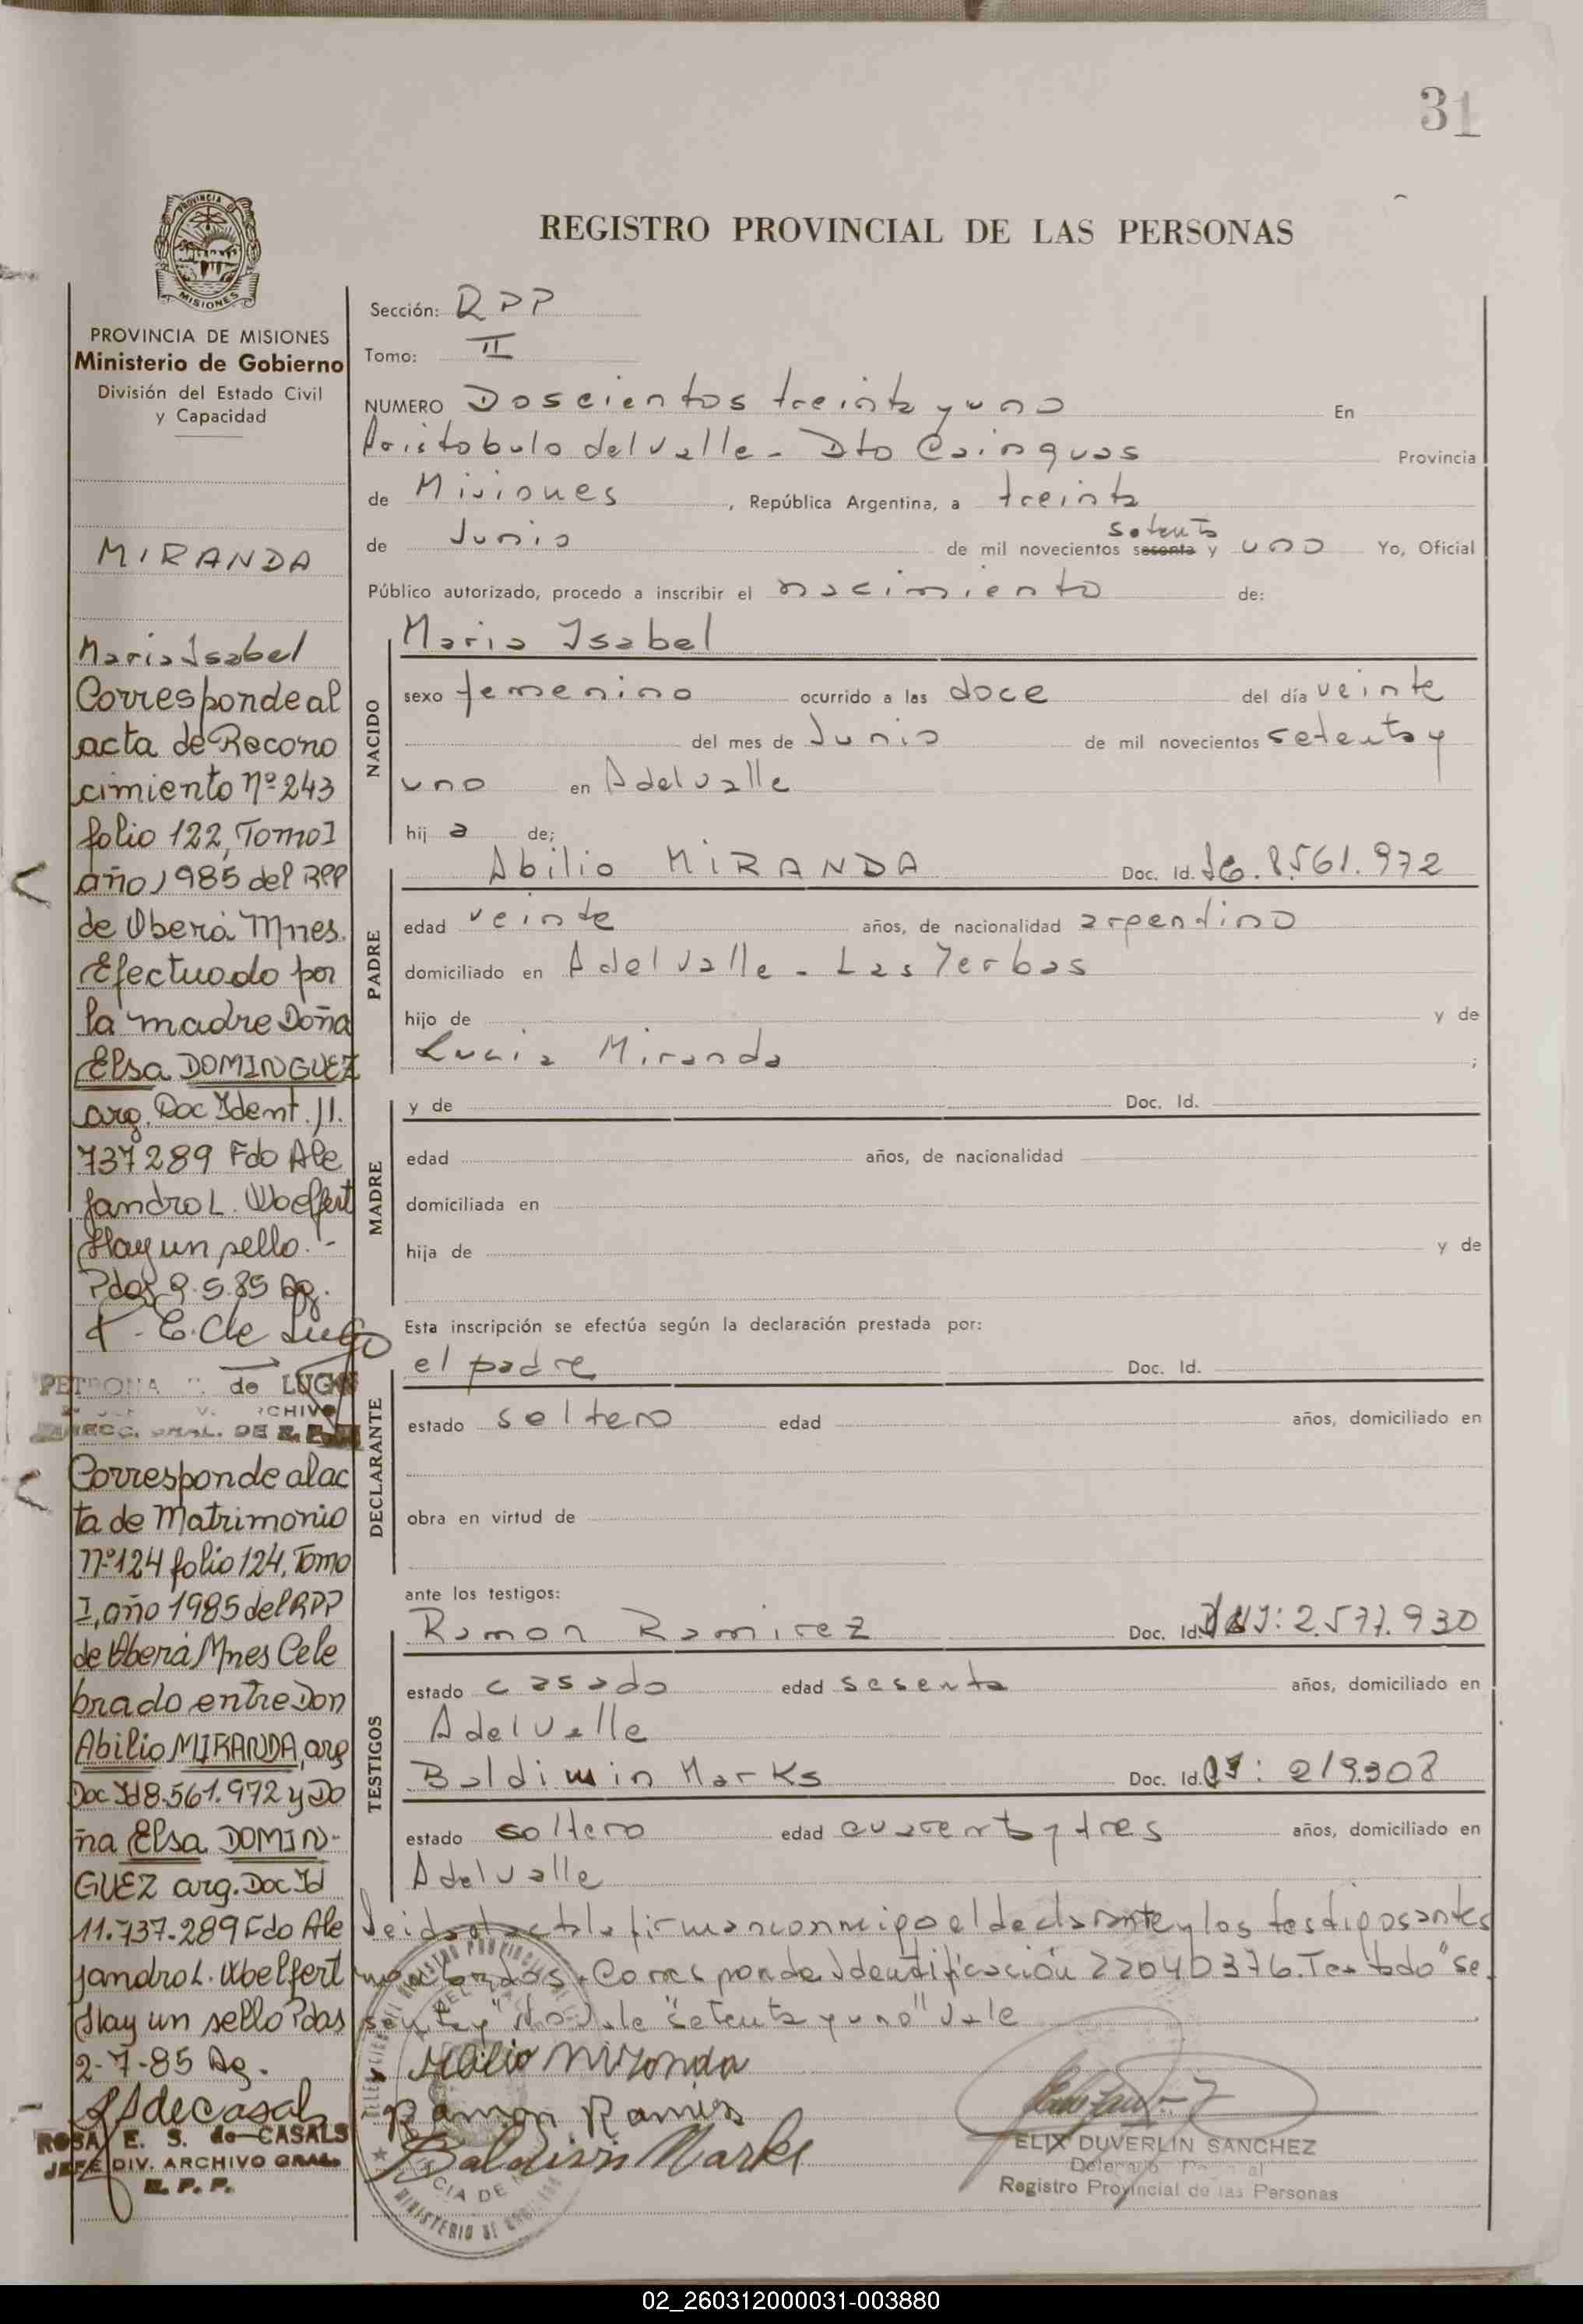 31
PROVINCIA D
MISIONES
REGISTRO PROVINCIAL DE LAS PERSONAS
PROVINCIA DE MISIONES
Ministerio de Gobierno
División del Estado Civil
y Capacidad
MIRANDA
Maria Isabel
Corresponde al
acta de Recono
cimiento nº 243
folio 122, Tomo I
año 1985 del RPP
de Oberá Mnes.
Efectuado por
la madre Doña
Elsa DOMINGUEZ
arg. Doc Ident. 11.
737289 Fdo Ale
jandro L.
Hay un sello.-
Pdas 9.5.85
de Lugo
de LUGO
Corresponde al ac
ta de Matrimonio
nº 124 folio 124, Tomo
I, año 1985 del RPP
de Oberá Mnes Cele
brado entre Don
Abilio MIRANDA, arg
Doc Id 8.561.972 y Do
ña Elsa DOMIN-
GUEZ arg. Doc Id
11.737.289 Fdo Ale
jandro L.
Hay un sello Pdas
2-7-85
ROSA E. S. de CASALS
JEFE DIV. ARCHIVO GRAL.
R. P. P.
Sección: RPP
Tomo: II
NUMERO Doscientos treinta y uno En
Aristobulo del Valle - Dto Cainguas Provincia
de Misiones, República Argentina, a treinta
setenta
de Junio de mil novecientos sesenta y uno Yo, Oficial
Público autorizado, procedo a inscribir el nacimiento de:
NACIDO
Maria Isabel
sexo femenino ocurrido a las doce del día veinte
del mes de Junio de mil novecientos setenta y
uno en A del Valle
hij a de;
PADRE
Abilio MIRANDA Doc. Id. 8.561.972
edad veinte años, de nacionalidad argentino
domiciliado en A del Valle - Las Yerbas
hijo de y de
Lucia Miranda ;
MADRE
y de Doc. Id.
edad años, de nacionalidad
domiciliada en
hija de y de
Esta inscripción se efectúa según la declaración prestada por:
DECLARANTE
el padre Doc. Id.
estado soltero edad años, domiciliado en
obra en virtud de
ante los testigos:
TESTIGOS
Ramon Ramirez Doc. Id. 2.577.930
estado casado edad sesenta años, domiciliado en
A del Valle
Baldimin Marks Doc. Id. 219.308
estado soltero edad cuarenta y tres años, domiciliado en
A del Valle
Leida el acta la firman conmigo el declarante y los testigos antes
Corresponde Identificación 22040376. Testado "se
senta y" No vale "setenta y uno" Vale
Abilio Miranda
Ramon Ramires
Baldimin Marks
ELIX DUVERLIN SANCHEZ
Registro Provincial de las Personas
02_260312000031-003880